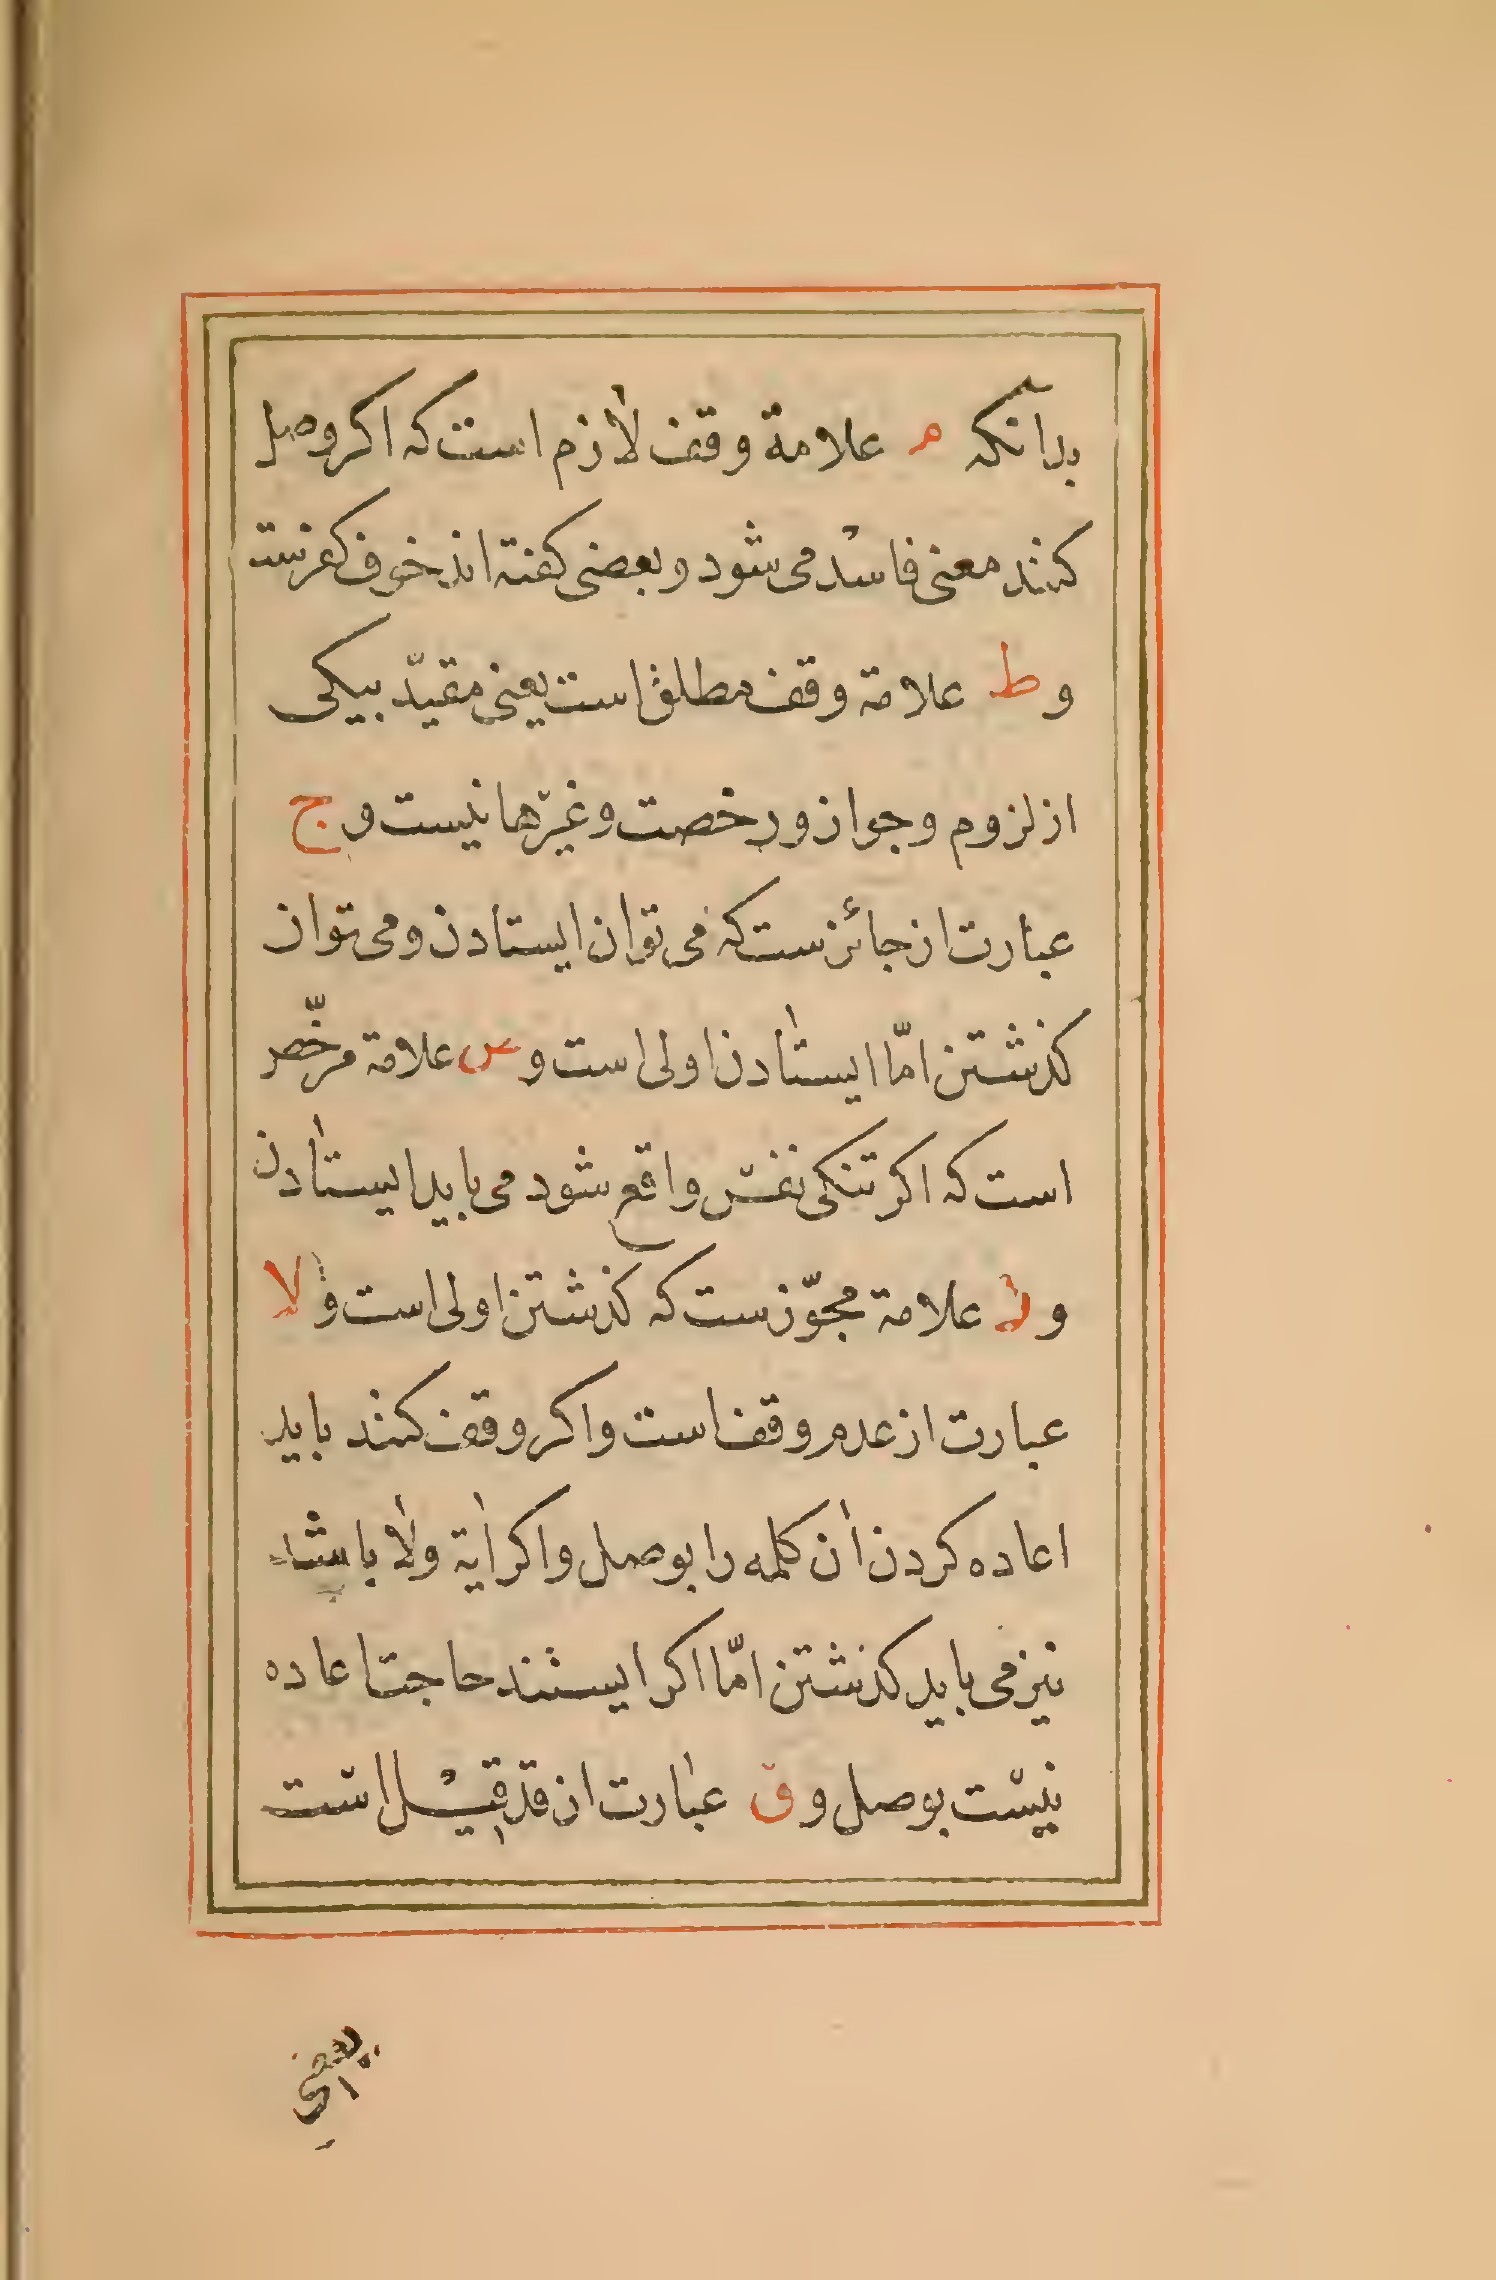 بدانکه م علامة وقف لازم است که اکر وصل
کنند معنی فاسد می شود و بعضی کفته اند خوف کفرست
و ط علامة وقف مطلق است یعنی مقیّد بیکی
از لزوم و جواز و رخصت و غیرها نیست و ج
عبارت از جائزست که می توان ایستادن و می توان
کذشتن امّا ایستادن اولی است و ص علامة مرخّص
است که اکر تنکی نفس واقع شود می باید ایستادن
و ز علامة مجوّزست که کذشتن اولی است و لا
عبارت از عدم وقف است و اکر وقف کنند باید
اعاده کردن ان کلمه را بوصل و اکر ایة و لا باشد
نیز می باید کذشتن امّا اکر ایستند حاجت اعاده
نیست بوصل و ق عبارت از قد قیل است
یعنی